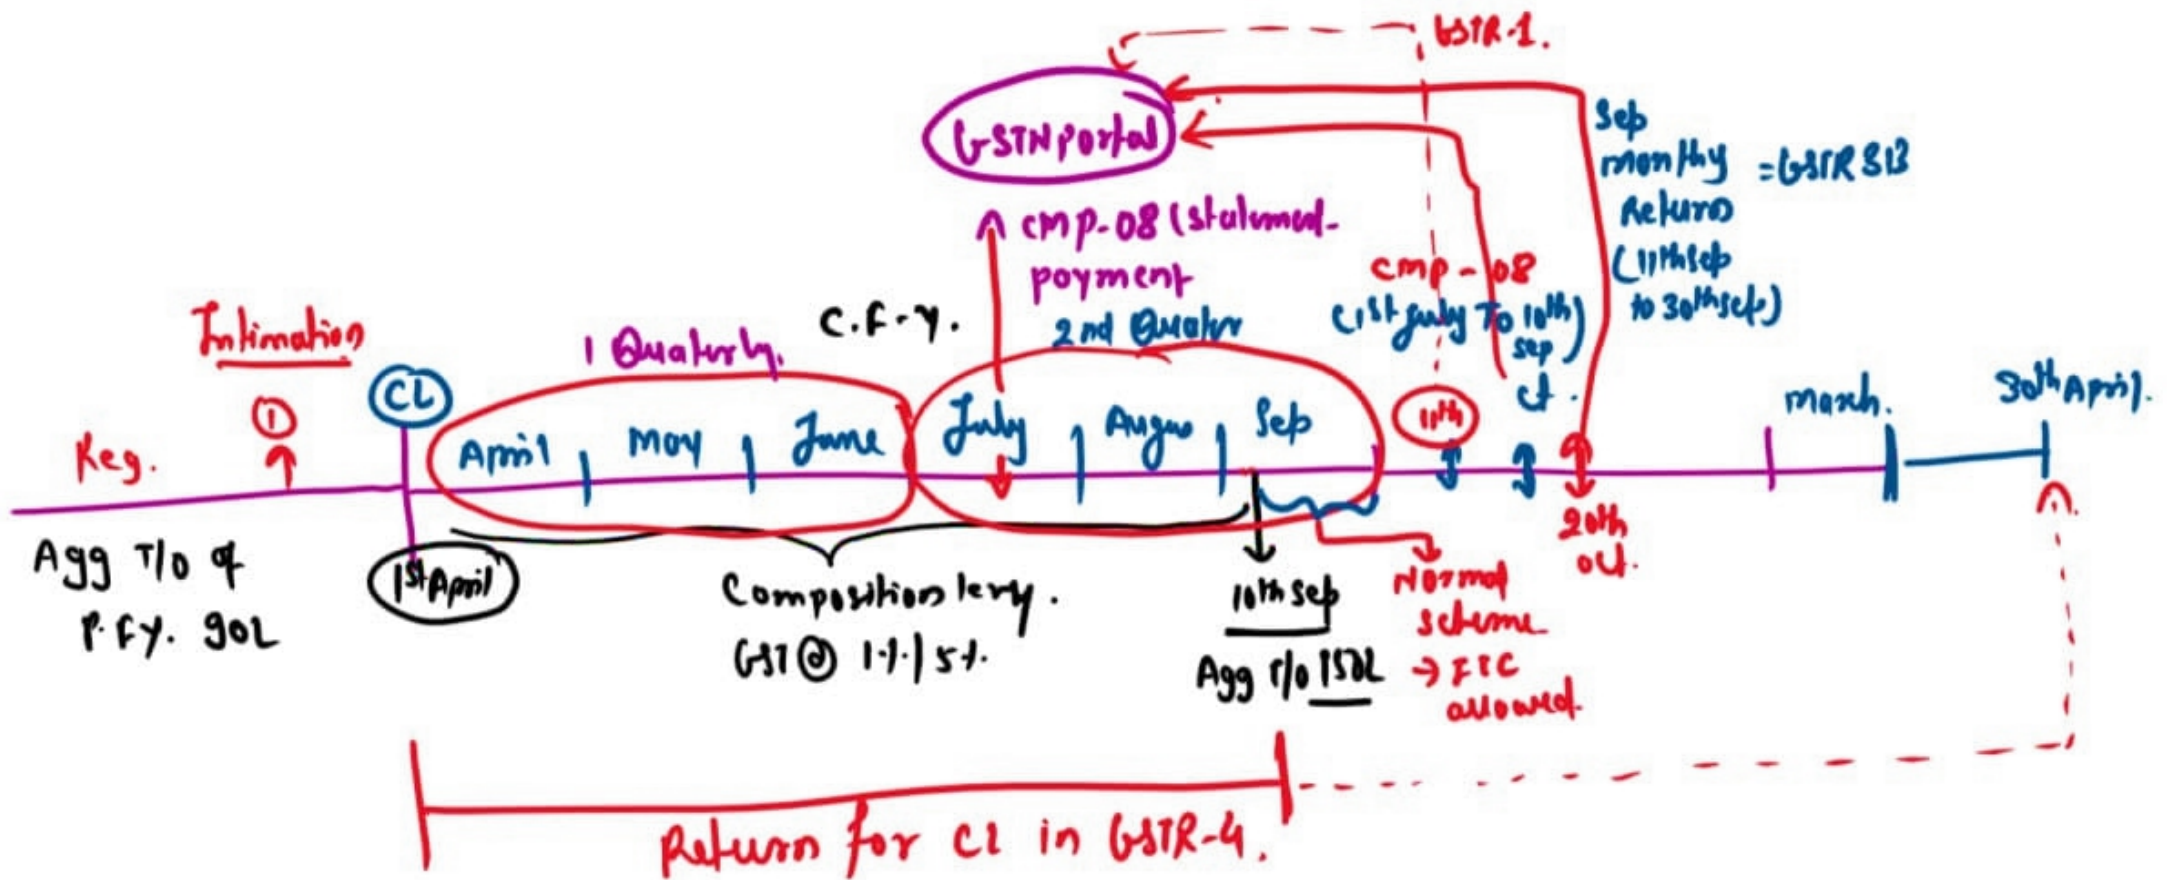 GSTR-1.
GSTN portal
Sep
monthy = GSTR 3B
Return
(11th Sep
to 30th Sep)
CMP-08 (Statement-
payment
CMP-08
(1st July To 10th
Sep)
Intimation
1
C.F.Y.
1 Quaterly.
2nd Quater
CL
Reg.
April
May
June
July
Augus
Sep
11th
ct.
March.
30th April.
Agg T/O of
P.F.Y. 90L
1st April
Composition levy.
GST @ 1%/5%.
10th Sep
Agg T/O 150L
Normal
scheme
→ ITC
allowed.
20th
oct.
Return for CL in GSTR-4.